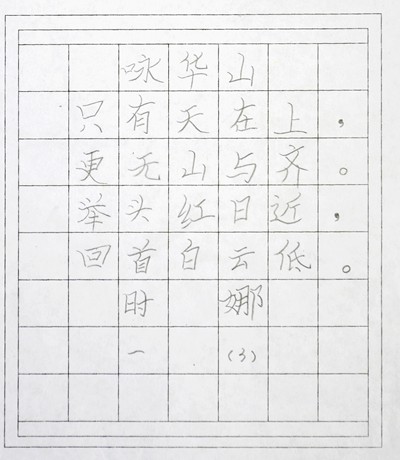 咏华山
只有天在上，
更无山与齐。
举头红日近，
回首白云低。
时 娜
一 (3)